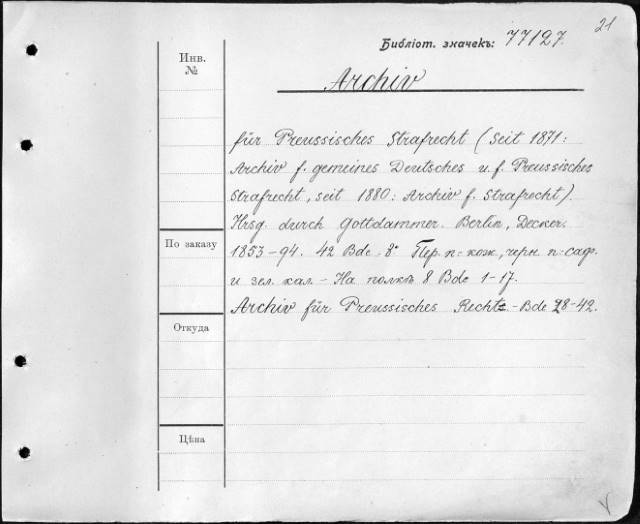 21
Библіот. значекъ: 77127.
Инв.
№
Archiv
für Preussisches Strafrecht (Seit 1871:
Archiv f. gemeines Deutsches u. f. Preussisches
Strafrecht, seit 1880: Archiv f. Strafrecht).
Hrsg. durch Gottdammer. Berlin, Decker.
По заказу
1853-94. 42 Bde. 8° Пер. п: кож., черн. п: саф.
и зел. кал. - На полкѣ 8 Bde 1-17.
Archiv für Preussisches Rechts - Bde 28-42.
Откуда
Цѣна
V